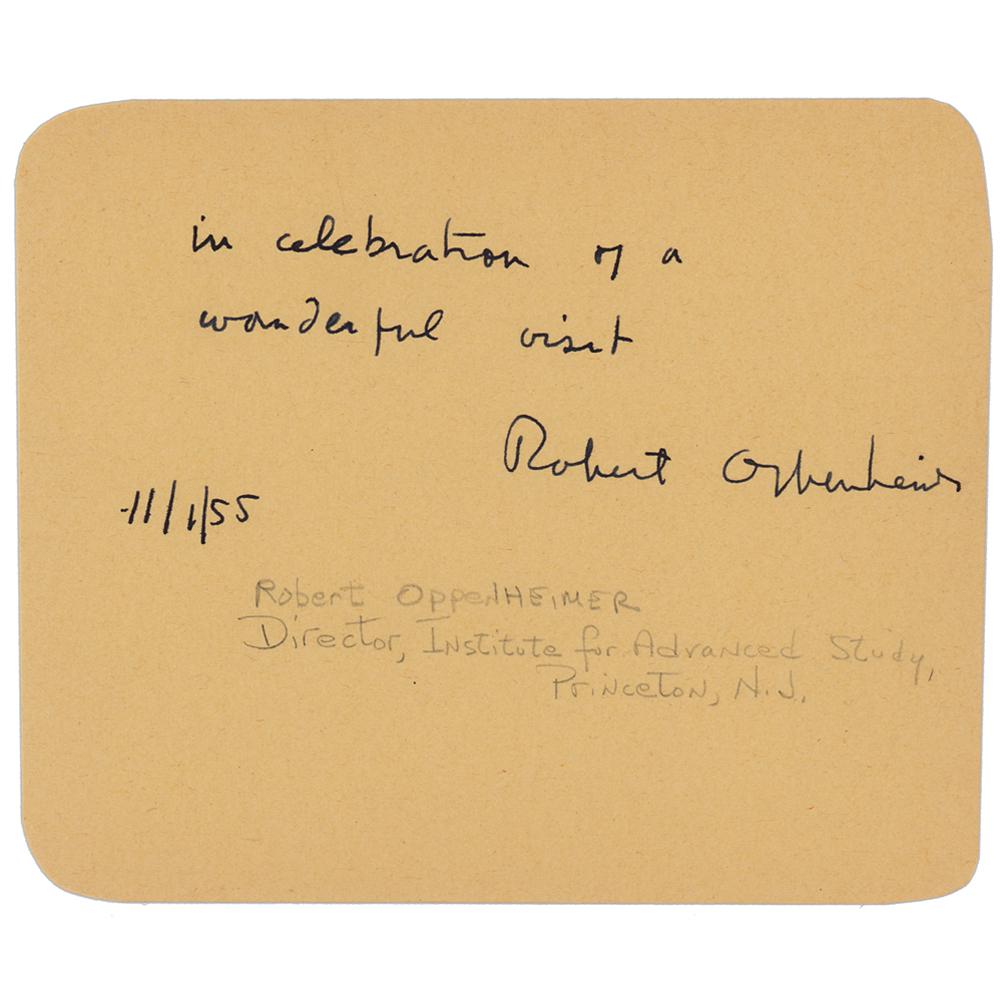 in celebration of a
wonderful visit
Robert Oppenheimer
11/1/55
Robert OppenHEIMER
Director, Institute for Advanced Study,
Princeton, N.J.